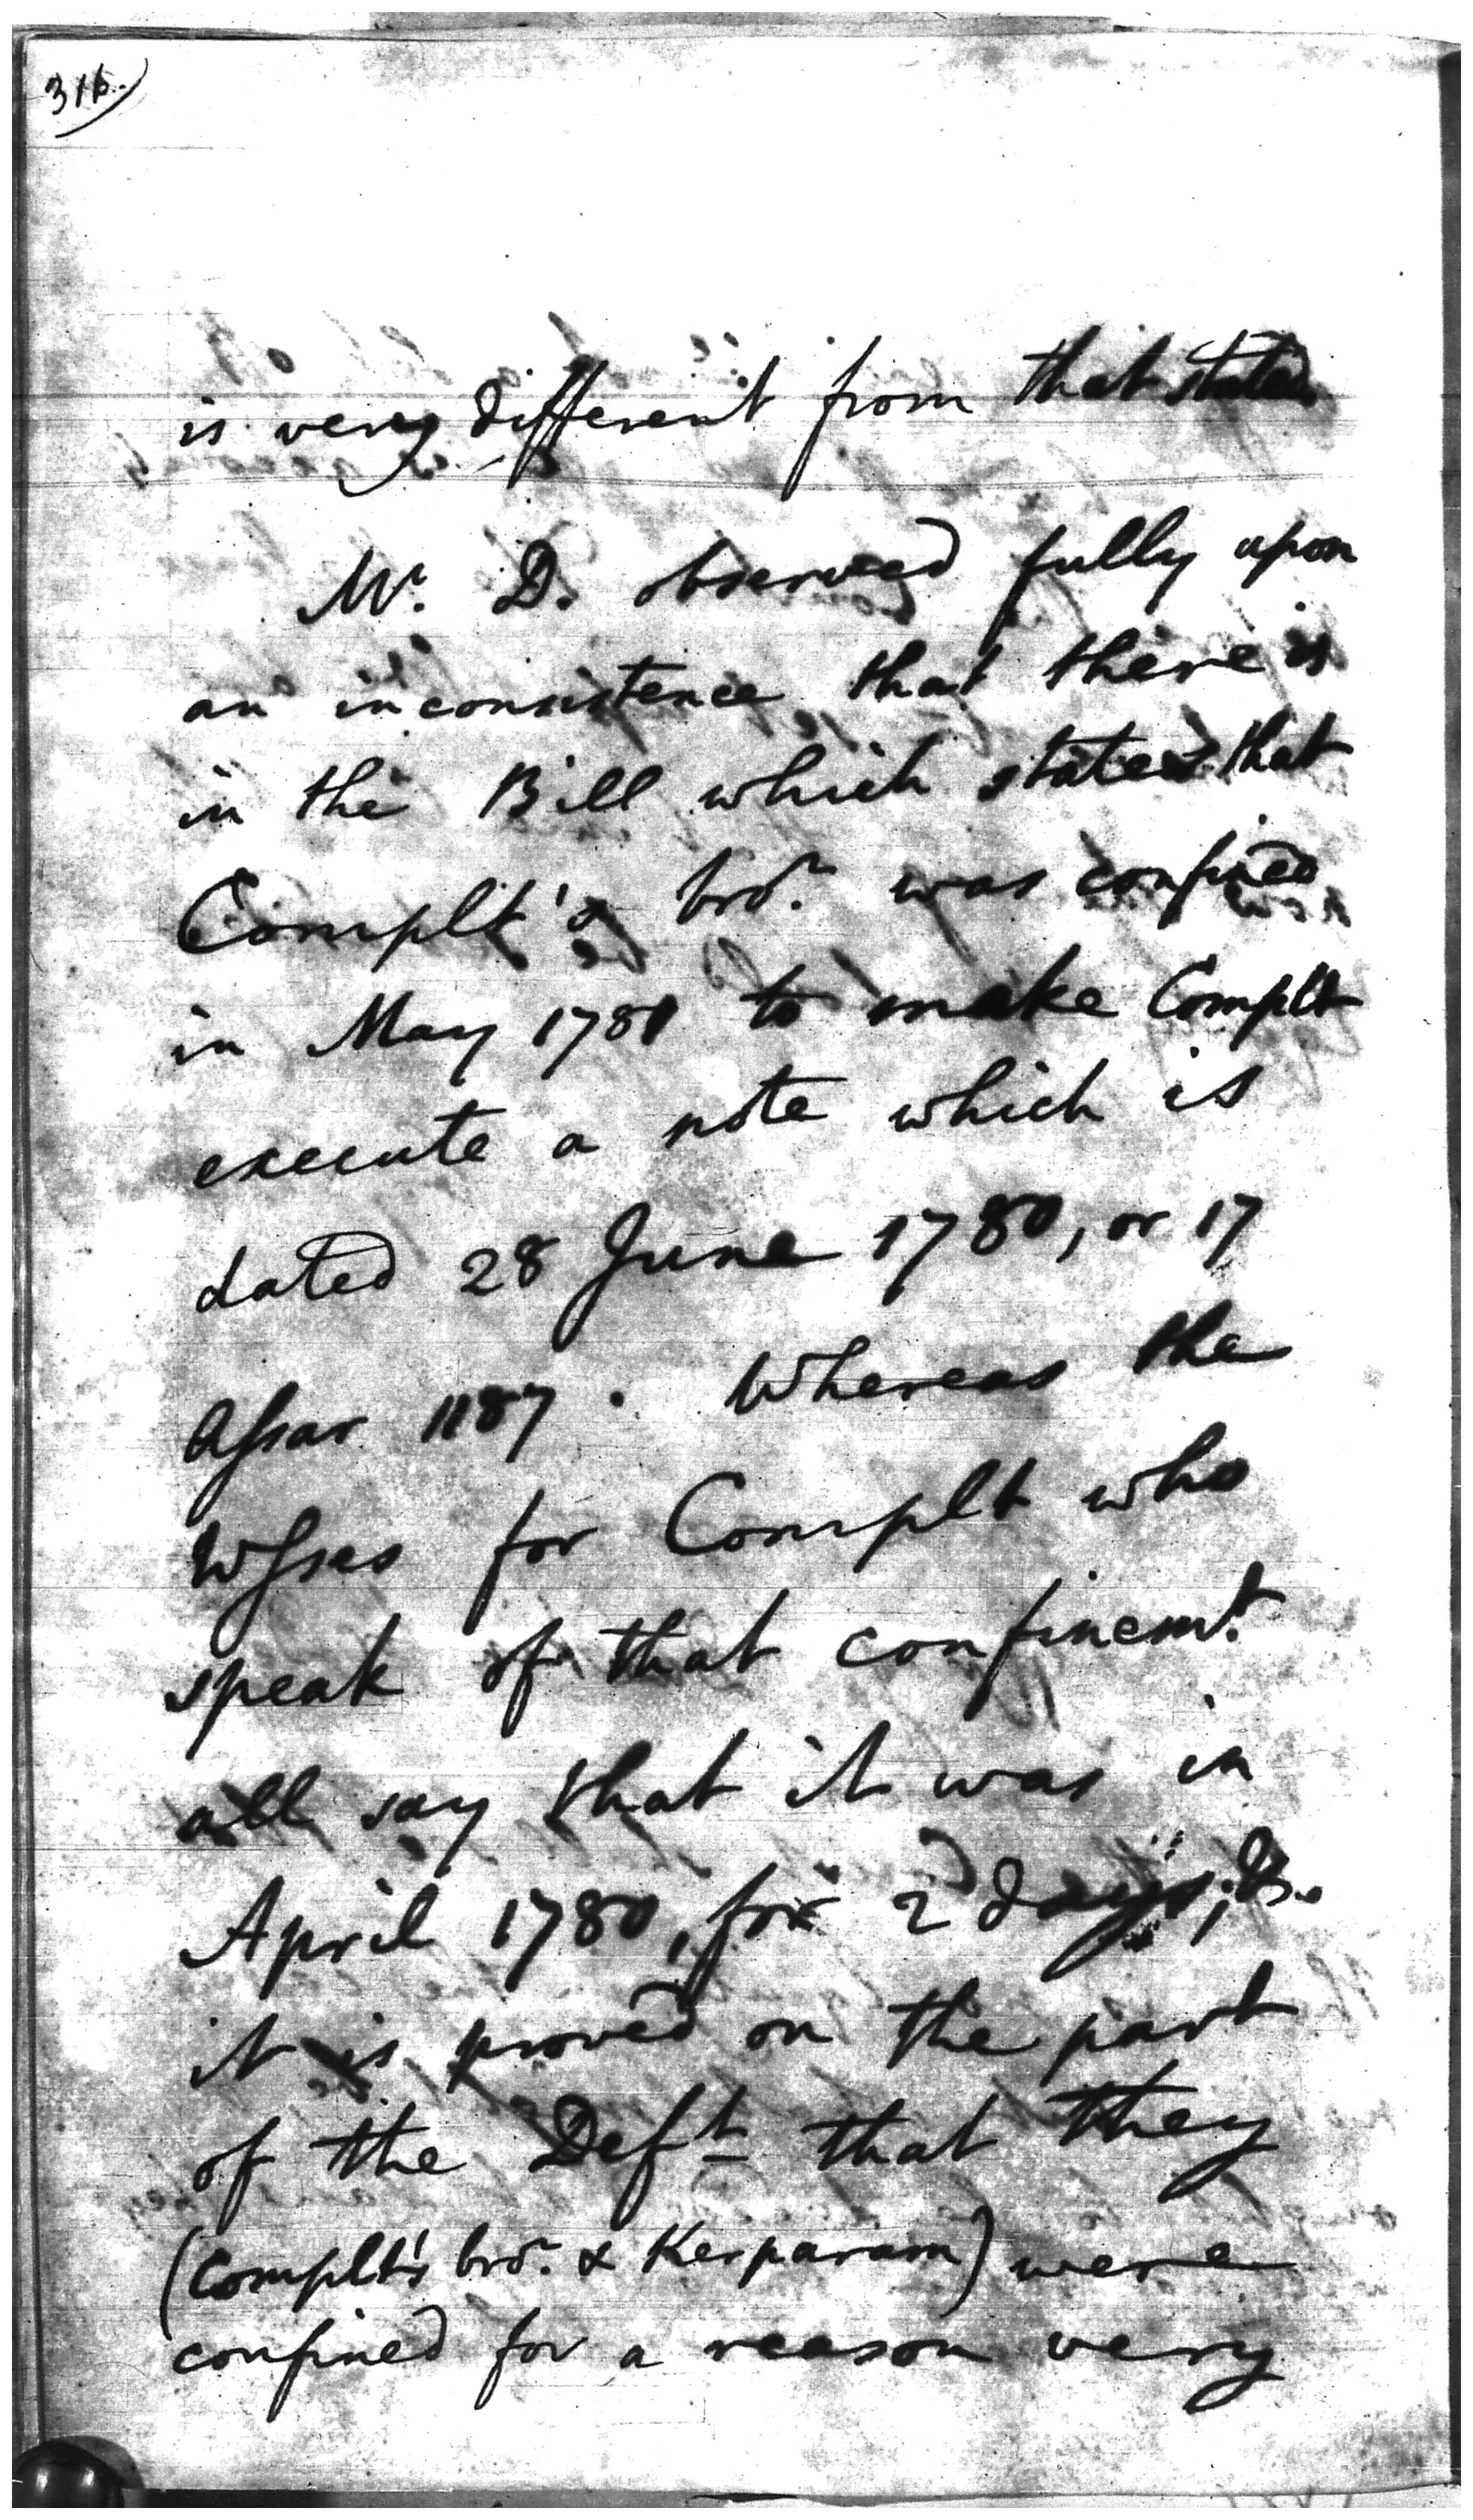 316.
is very different from that stated
Mr. D. observed fully upon
an inconsistence that there is
in the Bill which states that
Complt's bror. was confined
in May 1781 to make Complt
execute a note which is
dated 28 June 1780, or 17
Assar 1187. Whereas the
Wsses for Complt who
speak of that confinemt.
all say that it was in
April 1780, for 2 days, &
it is proved on the part
of the Deft that they
(Complt's bror. & Kerparam) were
confined for a reason very